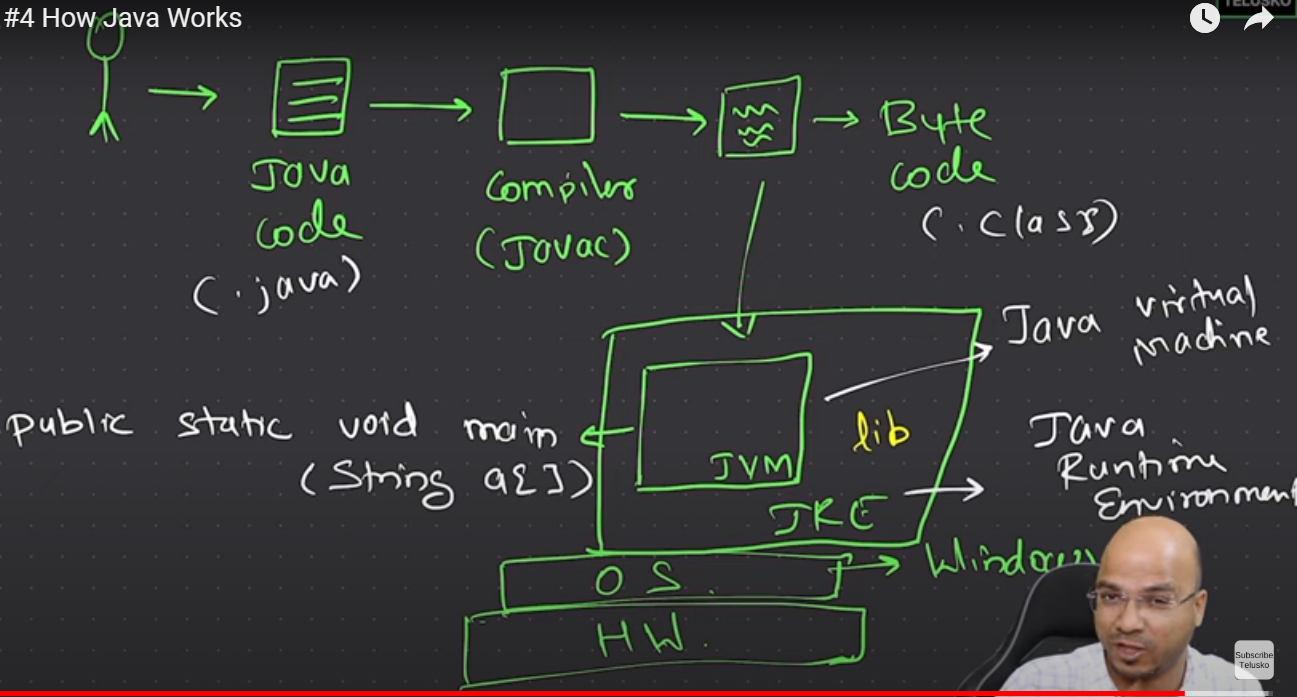 #4 How Java Works
TELUSKO
Java
code
(.java)
Compiler
(Javac)
Byte
code
(.class)
Java virtual
machine
public static void main
(String a[])
lib
JVM
Java
Runtime
Environment
JRE
OS.
Windows
HW.
Subscribe
Telusko